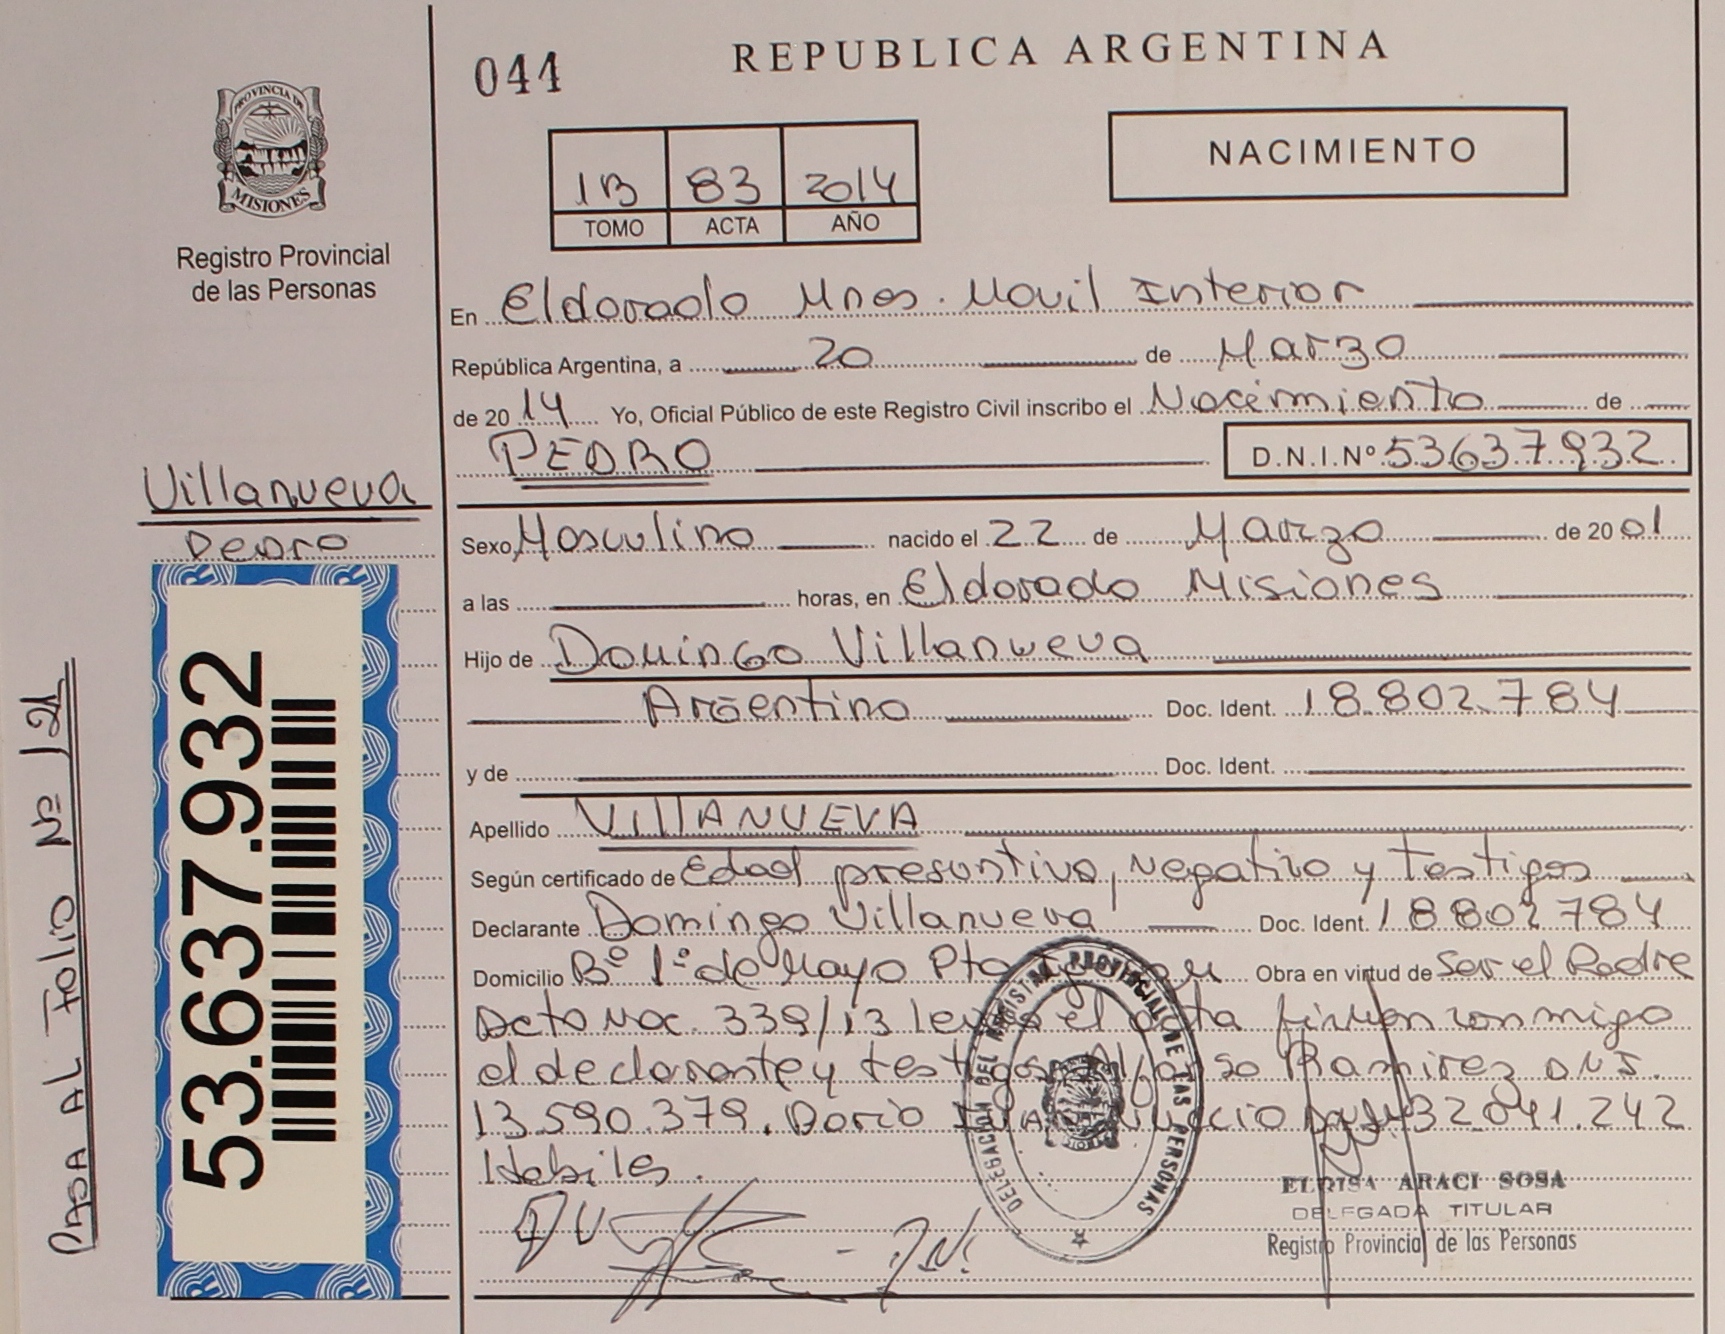 044
REPUBLICA ARGENTINA
PROVINCIA DE
MISIONES
Registro Provincial
de las Personas
1B 83 2014
TOMO ACTA AÑO
NACIMIENTO
En Eldorado Mnes. Movil Interior
República Argentina, a 20 de Marzo
de 2014 Yo, Oficial Público de este Registro Civil inscribo el Nacimiento de
PEDRO D.N.I.Nº 53637932
Villanueva
Pedro
Sexo Masculino nacido el 22 de Marzo de 2001
a las horas, en Eldorado Misiones
Hijo de Domingo Villanueva
Argentino Doc. Ident. 18.802.784
y de Doc. Ident.
Apellido VIllANUEVA
Según certificado de Edad presuntiva, negativo y testigos
Declarante Domingo Villanueva Doc. Ident. 18802784
Domicilio Bº 1º de Mayo Pto Obra en virtud de Ser el Padre
Dcto Nac. 339/13 el acta firman conmigo
el declarante y testigos Ramirez DNI.
13.590.379. Dario 32041.242
Habiles.
DV
53.637.932
PASA AL FOLIO Nº 121
DELEGACION DEL REGISTRO PROVINCIAL DE LAS PERSONAS
ELRISA ARACI SOSA
DELEGADA TITULAR
Registro Provincial de las Personas